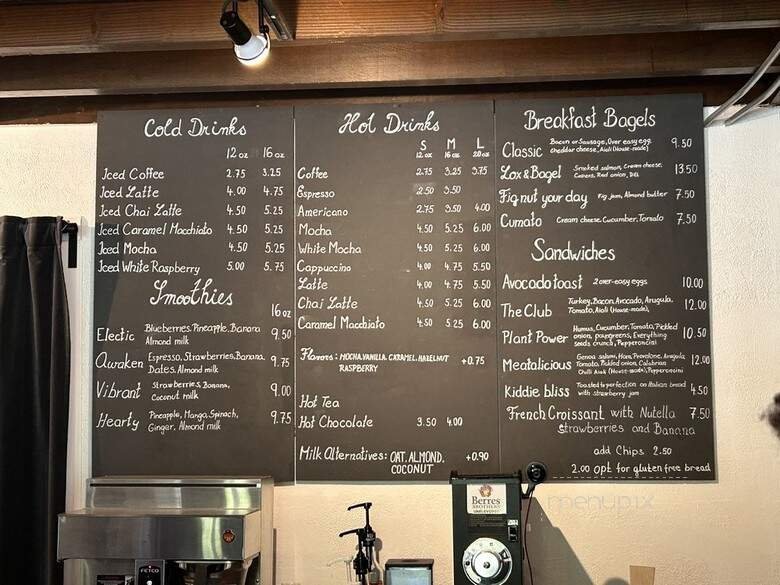 Cold Drinks
12 oz 16 oz
Iced Coffee 2.75 3.25
Iced Latte 4.00 4.75
Iced Chai Latte 4.50 5.25
Iced Caramel Macchiato 4.50 5.25
Iced Mocha 4.50 5.25
Iced White Raspberry 5.00 5.75
Smoothies
16 oz
Electic Blueberries, Pineapple, Banana
Almond milk 9.50
Awaken Espresso, Strawberries, Banana,
Dates, Almond milk 9.75
Vibrant Strawberries, Banana,
Coconut milk 9.00
Hearty Pineapple, Mango, Spinach,
Ginger, Almond milk 9.75
Hot Drinks
S M L
12 oz 16 oz 20 oz
Coffee 2.75 3.25 3.75
Espresso 2.50 3.50
Americano 2.75 3.50 4.00
Mocha 4.50 5.25 6.00
White Mocha 4.50 5.25 6.00
Cappuccino 4.00 4.75 5.50
Latte 4.00 4.75 5.50
Chai Latte 4.50 5.25 6.00
Caramel Macchiato 4.50 5.25 6.00
Flavors: MOCHA, VANILLA, CARAMEL, HAZELNUT +0.75
RASPBERRY
Hot Tea
Hot Chocolate 3.50 4.00
Milk Alternatives: OAT, ALMOND, +0.90
COCONUT
Breakfast Bagels
Classic Bacon or Sausage, Over easy egg, 9.50
cheddar cheese, Aioli (House-made)
Lox & Bagel Smoked salmon, Cream cheese, 13.50
Capers, Red onion, Dill
Fig nut your day Fig jam, Almond butter 7.50
Cumato Cream cheese, Cucumber, Tomato 7.50
Sandwiches
Avocado toast 2 over-easy eggs 10.00
The Club Turkey, Bacon, Avocado, Arugula, 12.00
Tomato, Aioli (House-made),
Plant Power Humus, Cucumber, Tomato, Pickled 10.50
onion, Everything
seeds crunch, Pepperoncini
Meatalicious Genoa salami, Ham, Provolone, Arugula, 12.00
Tomato, Pickled Onion, Calabrian
Chili Aioli (House-made), Pepperoncini
Kiddie bliss Toasted to perfection on Italian bread 4.50
with strawberry jam
French Croissant with Nutella 7.50
strawberries and Banana
add Chips 2.50
2.00 opt for gluten free bread
Berres
BROTHERS
FETCO
menupix